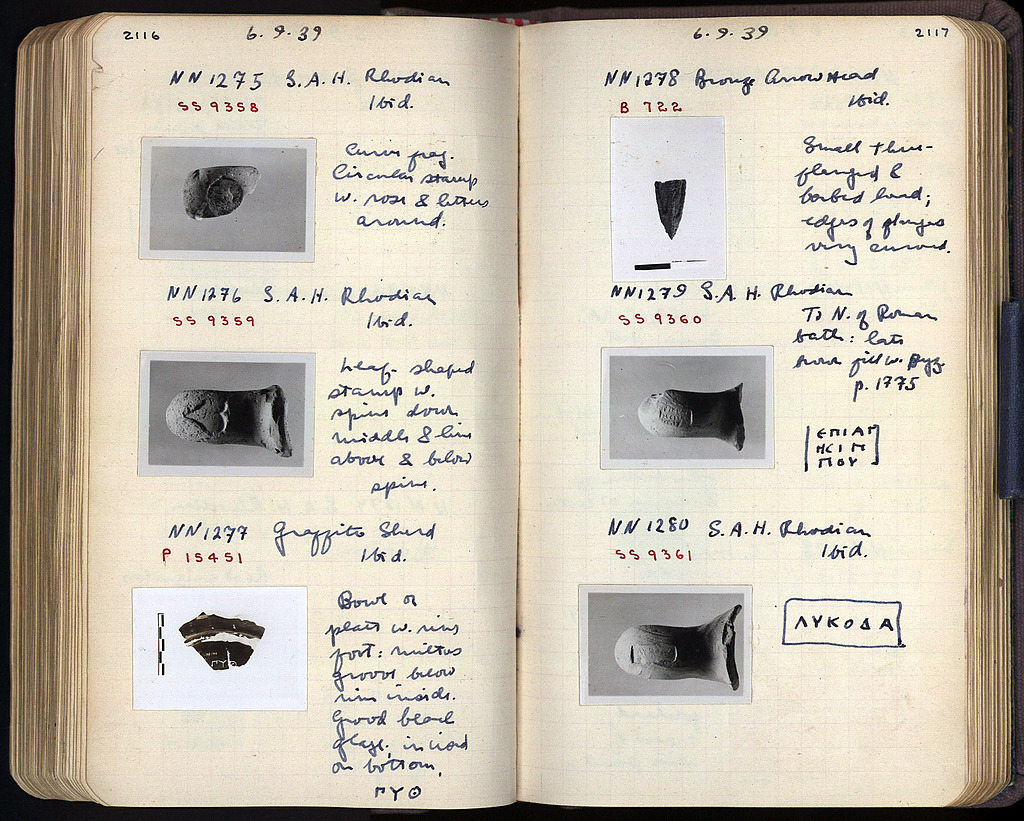 2116
6.9.39
NN1275 S.A.H. Rhodian
SS 9358
Ibid.
Curvs frag.
Circular stamp
w. rose & letters
around.
NN1276 S.A.H. Rhodian
SS 9359
Ibid.
Leaf-shaped
stamp w.
spine down
middle & line
above & below
spine.
NN1277 Graffito Sherd
P 15451
Ibid.
Bowl or
plate w. ring
foot: miltos
groove below
rim inside.
Good black
glaze, incised
on bottom,
ΓΥΘ
6.9.39
2117
NN1278 Bronze Arrowhead
B 722
Ibid.
Small three-
flanged &
barbed head;
edges of flanges
very
NN1279 S.A.H. Rhodian
SS 9360
To N. of Roman
bath: late
Rom fill w. Byz.
p. 1775
ΕΠΙΑΓ
ΗСΙΠ
ΠΟΥ
NN1280 S.A.H. Rhodian
SS 9361
Ibid.
ΛΥΚΟΔΑ